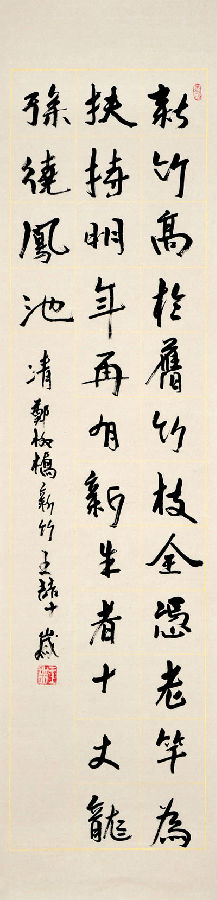 新竹高於舊竹枝全憑老竿為
扶持明年再有新生者十丈龍
孫繞鳳池
清鄭板橋新竹王十歲